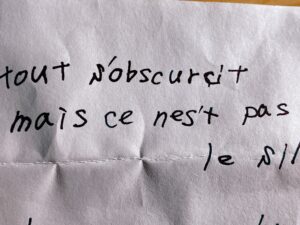 tout s'obscurcit
mais ce nes't pas
le